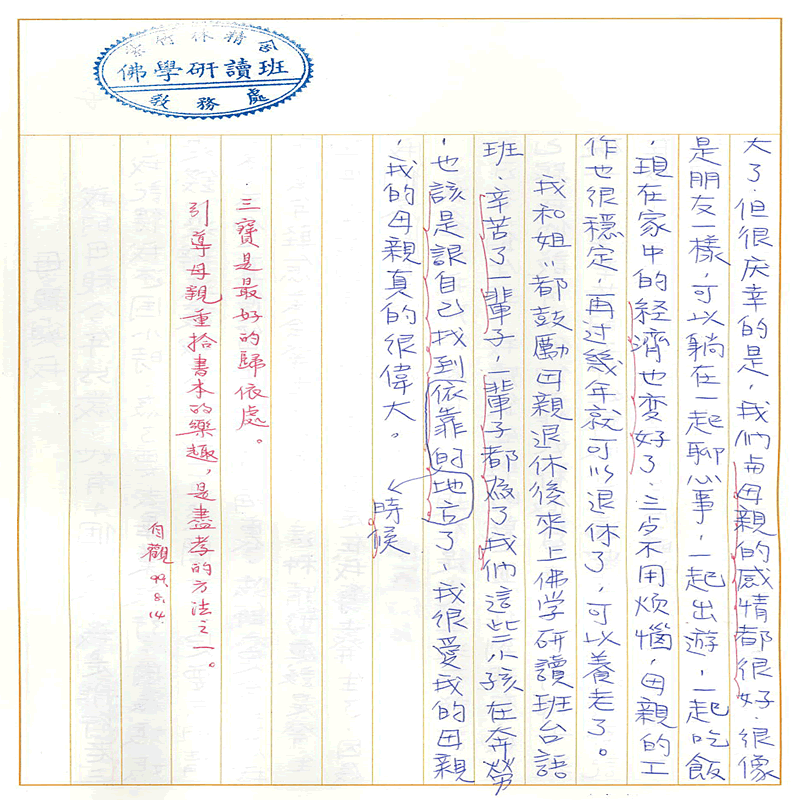 佛學研讀班
教務處
大了．但很庆幸的是，我们与母親的感情都很好．很像
是朋友一樣，可以躺在一起聊心事，一起出遊，一起吃飯
．現在家中的経濟也变好了．三歺不用烦惱，母親的工
作也很穩定，再过幾年就可以退休了，可以養老了。
我和姐〃都鼓勵母親退休後來上佛学研讀班台語
班．辛苦了一輩子，一輩子都為了我們這些小孩在奔勞
，也該是讓自己找到依靠的地方了，我很愛我的母親
，我的母親真的很偉大。
時候
三寶是最好的歸依處。
引導母親重拾書本的樂趣，是盡孝的方法之一。
自觀 99.8.14